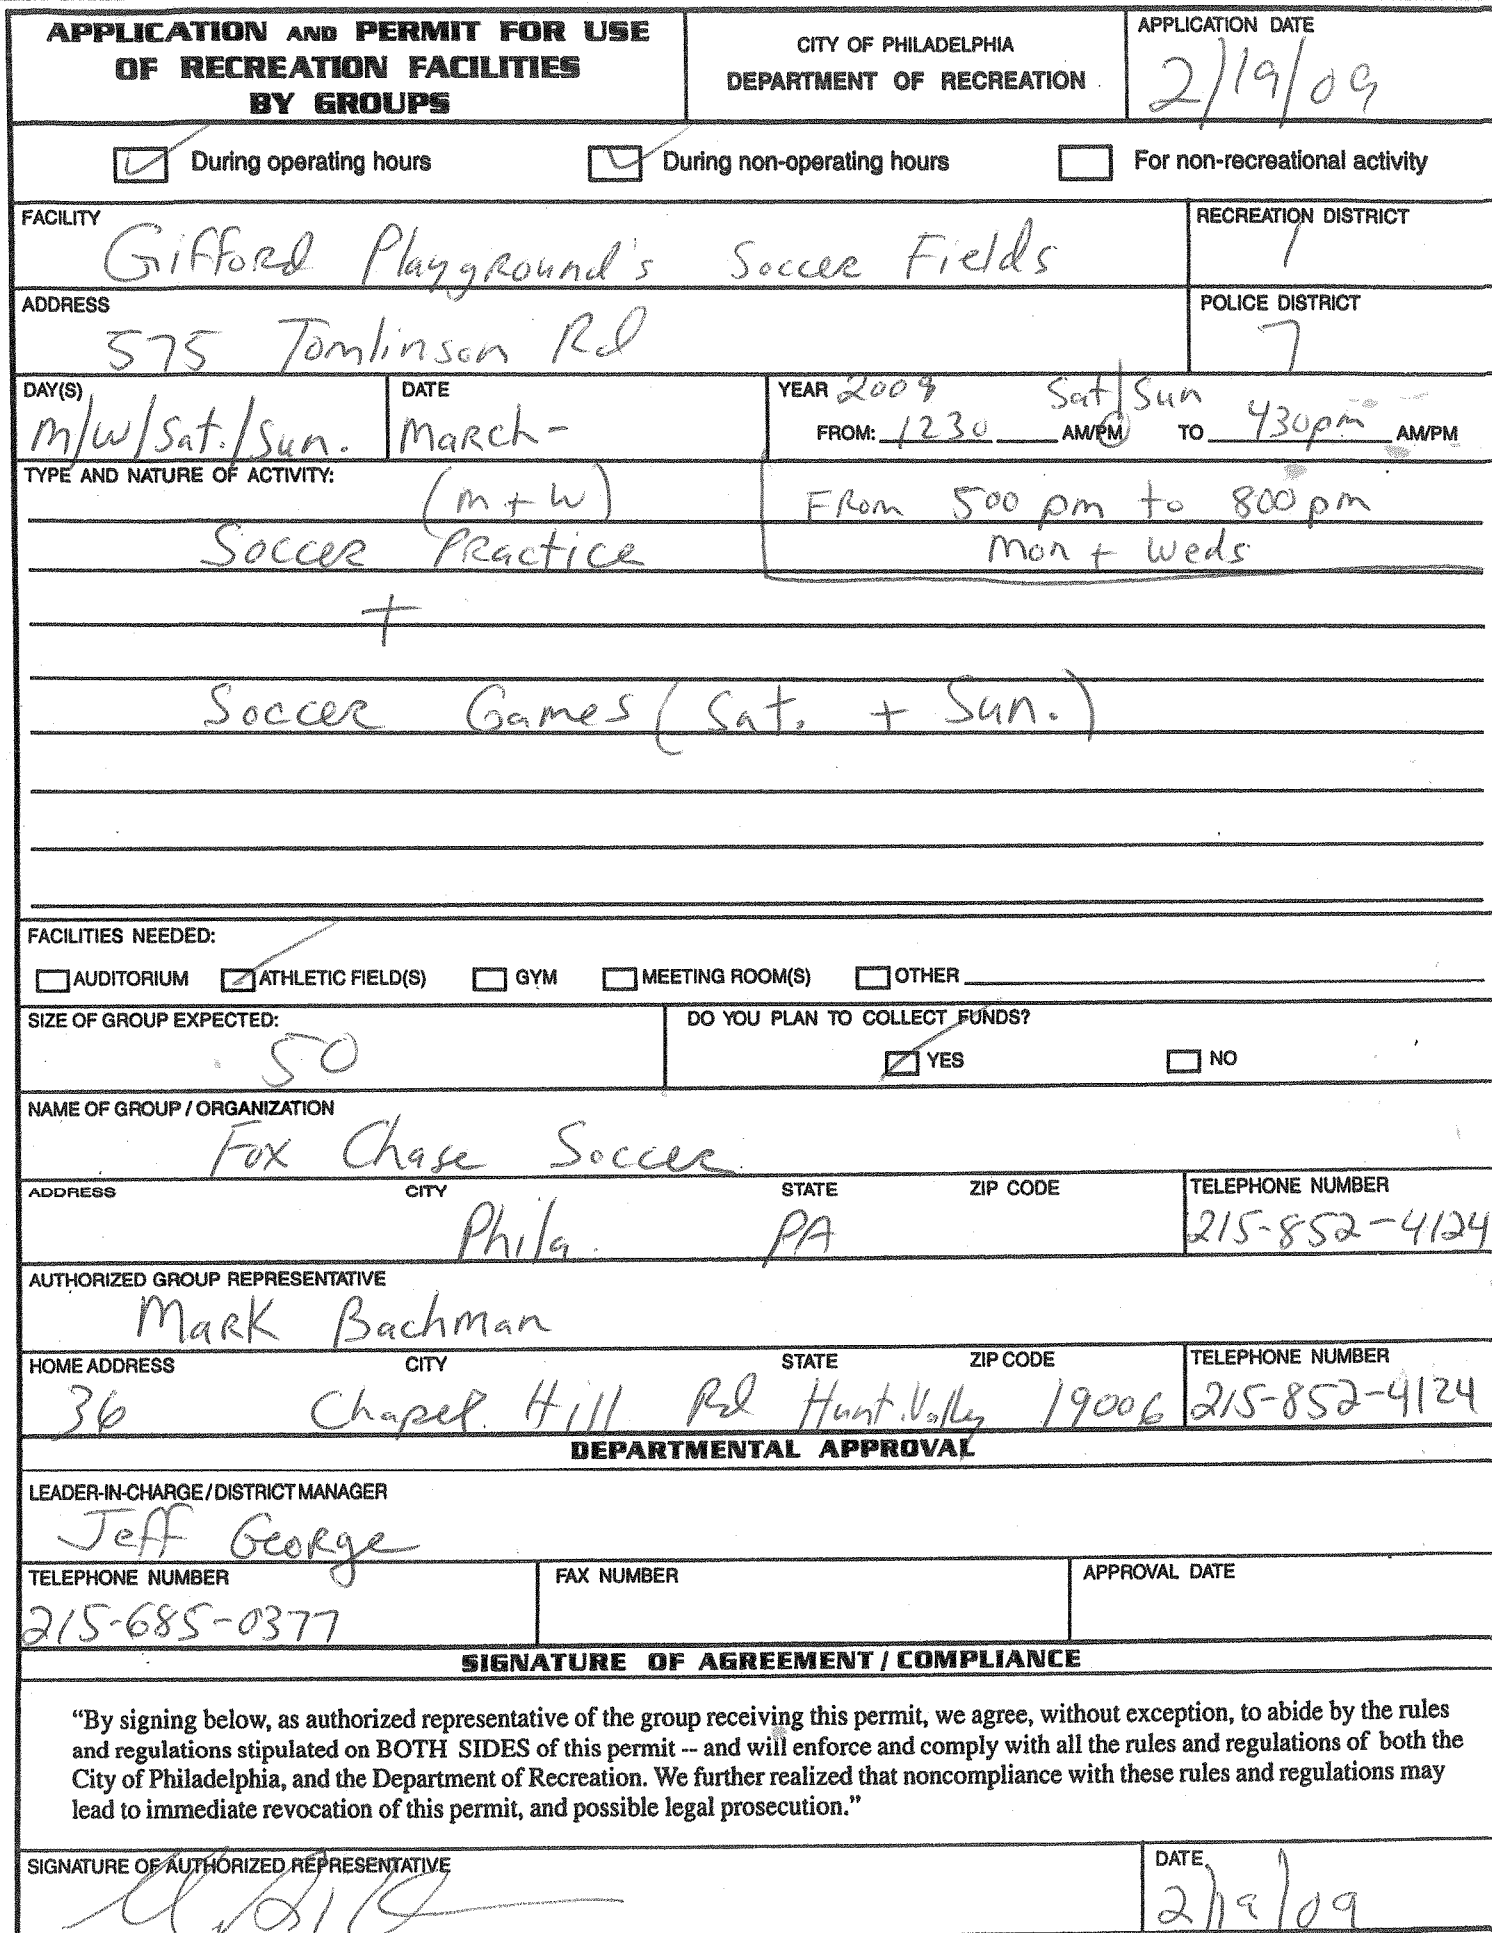 APPLICATION AND PERMIT FOR USE
OF RECREATION FACILITIES
BY GROUPS
CITY OF PHILADELPHIA
DEPARTMENT OF RECREATION
APPLICATION DATE
2/19/09
During operating hours
During non-operating hours
For non-recreational activity
FACILITY
Gifford Playground's Soccer Fields
RECREATION DISTRICT
1
ADDRESS
575 Tomlinson Rd
POLICE DISTRICT
7
DAY(S)
M/W/Sat./Sun.
DATE
March-
YEAR 2009 Sat/Sun
FROM: 1230 AM/PM TO 430pm AM/PM
TYPE AND NATURE OF ACTIVITY:
(m + w)
From 500 pm to 800 pm
Soccer Practice
Mon + Weds
+
Soccer Games (Sat. + Sun.)
FACILITIES NEEDED:
AUDITORIUM ATHLETIC FIELD(S) GYM MEETING ROOM(S) OTHER
SIZE OF GROUP EXPECTED:
50
DO YOU PLAN TO COLLECT FUNDS?
YES NO
NAME OF GROUP / ORGANIZATION
Fox Chase Soccer
ADDRESS CITY STATE ZIP CODE TELEPHONE NUMBER
Phila. PA 215-852-4124
AUTHORIZED GROUP REPRESENTATIVE
Mark Bachman
HOME ADDRESS CITY STATE ZIP CODE TELEPHONE NUMBER
36 Chapel Hill Rd Hunt. Valley 19006 215-852-4124
DEPARTMENTAL APPROVAL
LEADER-IN-CHARGE / DISTRICT MANAGER
Jeff George
TELEPHONE NUMBER
215-685-0377
FAX NUMBER
APPROVAL DATE
SIGNATURE OF AGREEMENT / COMPLIANCE
“By signing below, as authorized representative of the group receiving this permit, we agree, without exception, to abide by the rules
and regulations stipulated on BOTH SIDES of this permit -- and will enforce and comply with all the rules and regulations of both the
City of Philadelphia, and the Department of Recreation. We further realized that noncompliance with these rules and regulations may
lead to immediate revocation of this permit, and possible legal prosecution.”
SIGNATURE OF AUTHORIZED REPRESENTATIVE
DATE
2/19/09